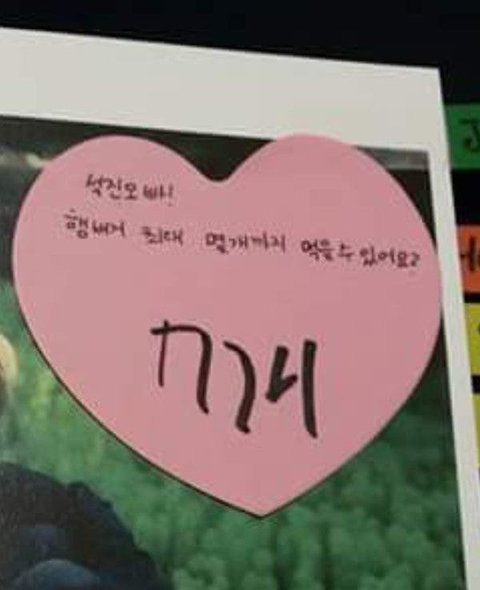 석진오빠!
햄버거 최대 몇개까지 먹을수있어요?
7개